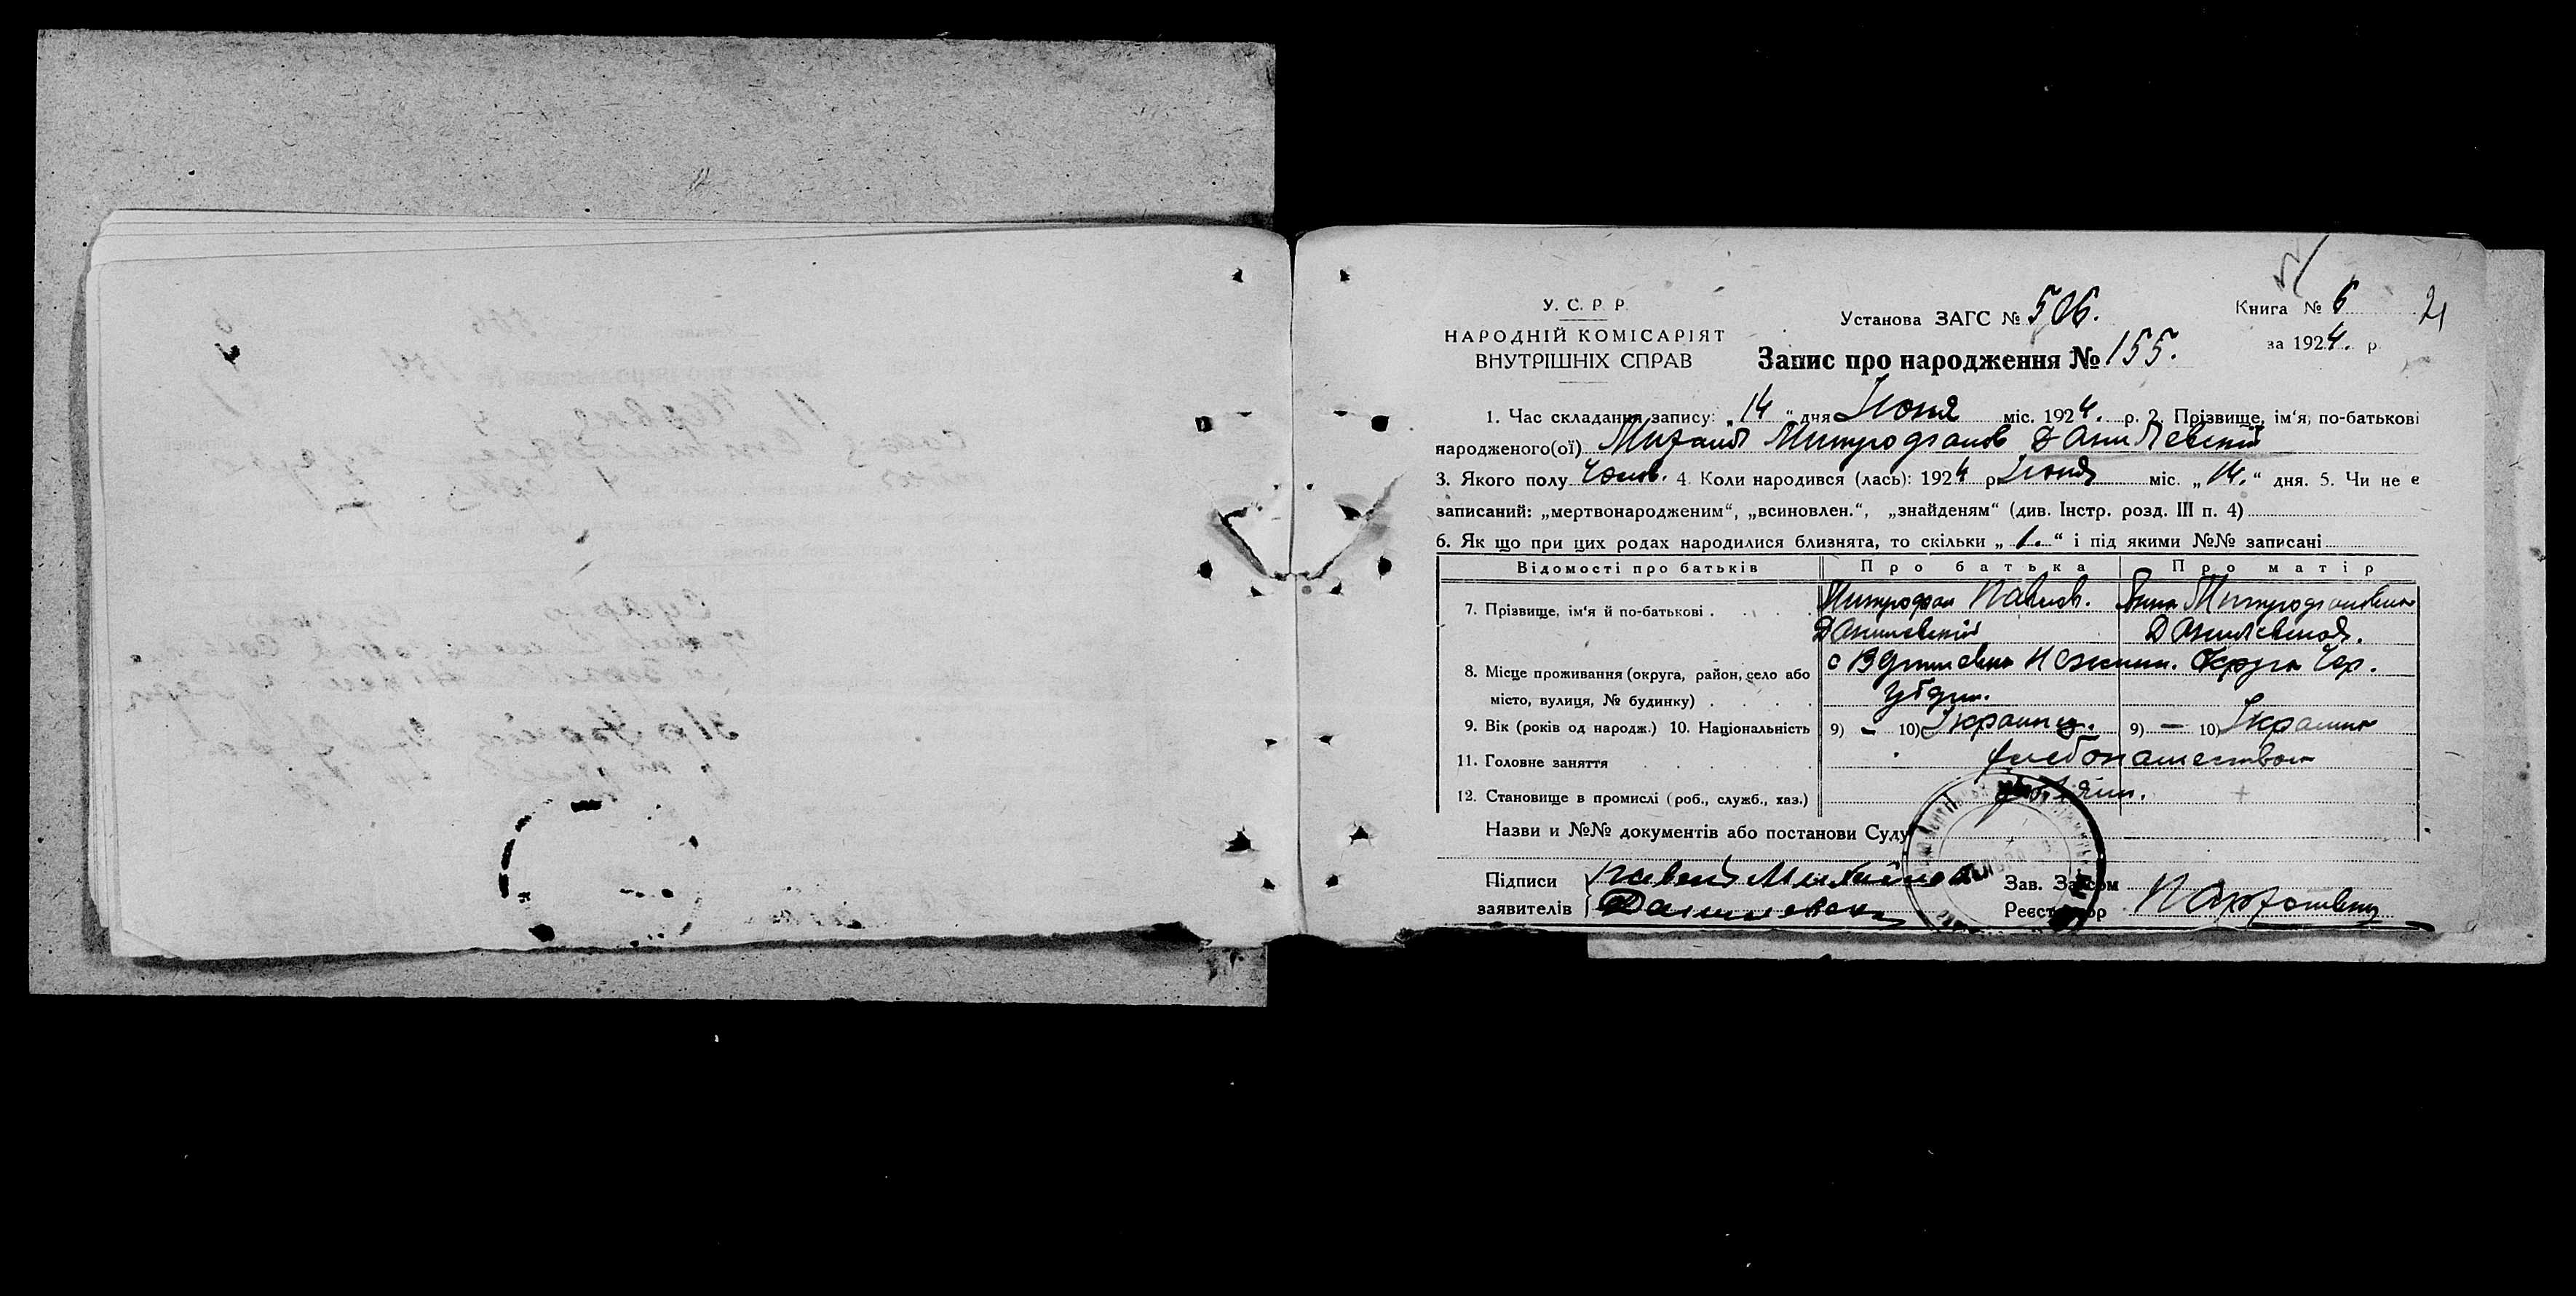 У. С. Р. Р.
НАРОДНІЙ КОМІСАРІЯТ
ВНУТРІШНІХ СПРАВ
Установа ЗАГС № 506.
Запис про народження № 155.
Книга № 6
21
за 1924. р.
1. Час складання запису: „14“ дня Июня міс. 1924. р. 2. Прізвище, ім‘я, по-батькові
народженого(ої) Михаил Митрофанов Данилевский
3. Якого полу Чолов. 4. Коли народився (лась): 1924 р. Июня міс. „14.“ дня. 5. Чи не є
записаний: „мертвонародженим“, „всиновлен.“, „знайденям“ (див. Інстр. розд. III п. 4)
6. Як що при цих родах народилися близнята, то скільки „1.“ і під якими №№ записані
Відомості про батьків Про батька Про матір
7. Прізвище, ім‘я й по-батькові . Митрофан Павлов. Анна Митрофановна
Данилевский Данилевская.
8. Місце проживання (округа, район, село або с Нежин. Округа Чер.
місто, вулиця, № будинку) Губерн.
9. Вік (років од народж.) 10. Національність 9) - 10) Украинец. 9) — 10) Украинка
11. Головне заняття хлебопашество
12. Становище в промислі (роб., служб., хаз.)
Назви и №№ документів або постанови Суду
Підписи Павел Михайлов Зав. Загсом
заявителів Данилевский Реєстратор